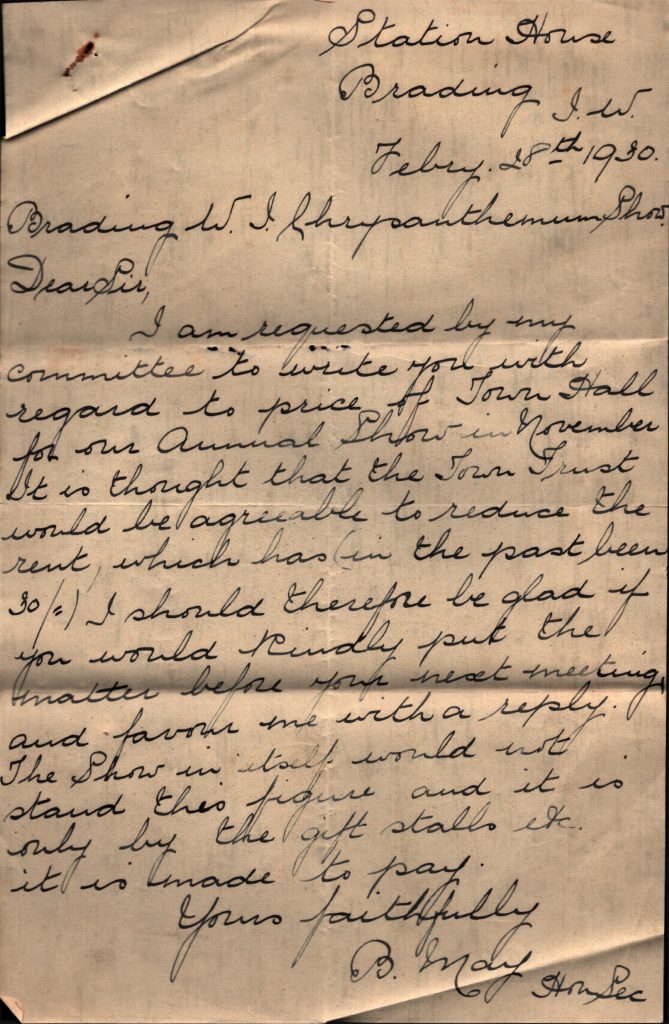 Station House
Brading
I. W.
Febry. 28th 1930.
Brading W. I. Chrysanthemum Show.
Dear Sir,
I am requested by my
committee to write you with
regard to price of Town Hall
for our Annual Show in November
It is thought that the Town Trust
would be agreeable to reduce the
rent, which has (in the past been
30/=) I should therefore be glad if
you would kindly put the
matter before your next meeting,
and favour me with a reply.
The Show in itself would not
stand this figure and it is
only by the gift stalls etc.
it is made to pay.
Yours faithfully
B. May
Hon Sec